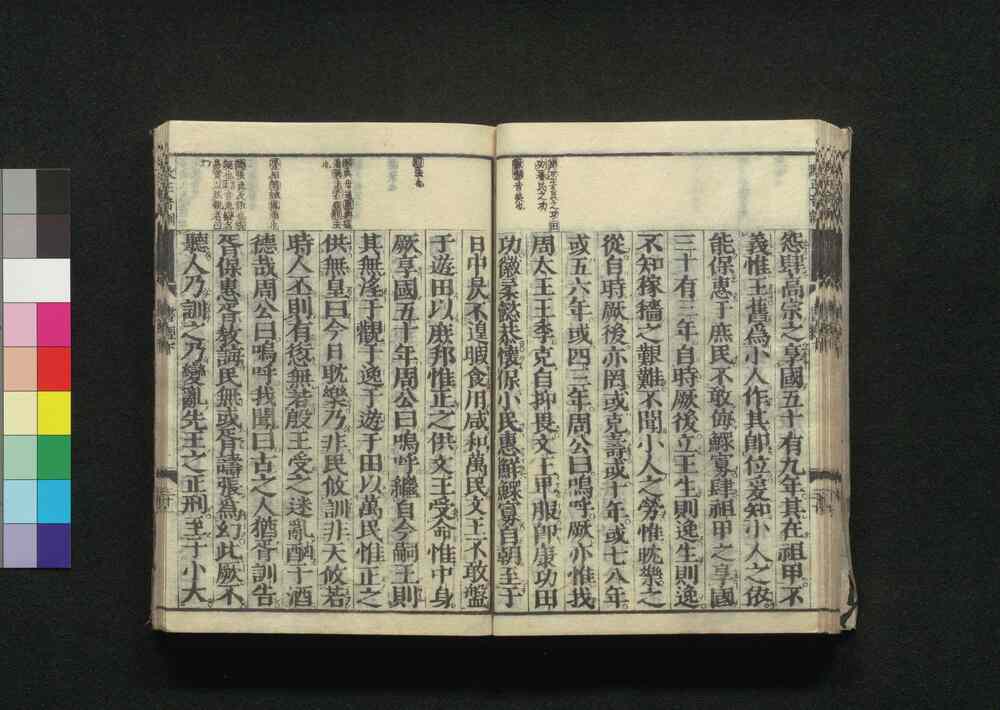 怨肆高宗之享國五十有九年其在祖甲不
義惟王舊爲小人作其卽位爰知小人之依
能保惠于庶民不敢侮鰥寡肆祖甲之享國
三十有三年自時厥後立王生則逸生則逸
不知稼穡之艱難不聞小人之勞惟耽樂之
從自時厥後亦罔或克壽或十年或七八年
或五六年或四三年周公曰嗚呼厥亦惟我
周太王王季克自抑畏文王卑服卽康功田
功徽柔懿恭懷保小民惠鮮鰥寡自朝至于
日中昃不遑暇食用咸和萬民文王不敢盤
于遊田以庶邦惟正之供文王受命惟中身
厥享國五十年周公曰嗚呼繼自今嗣王則
其無淫于觀于逸于遊于田以萬民惟正之
供無皇曰今日耽樂乃非民攸訓非天攸若
時人丕則有愆無若殷王受之迷亂酗于酒
德哉周公曰嗚呼我聞曰古之人猶胥訓告
胥保惠胥敎誨民無或胥譸張爲幻此厥不
聽人乃訓之乃變亂先王之正刑至于小大